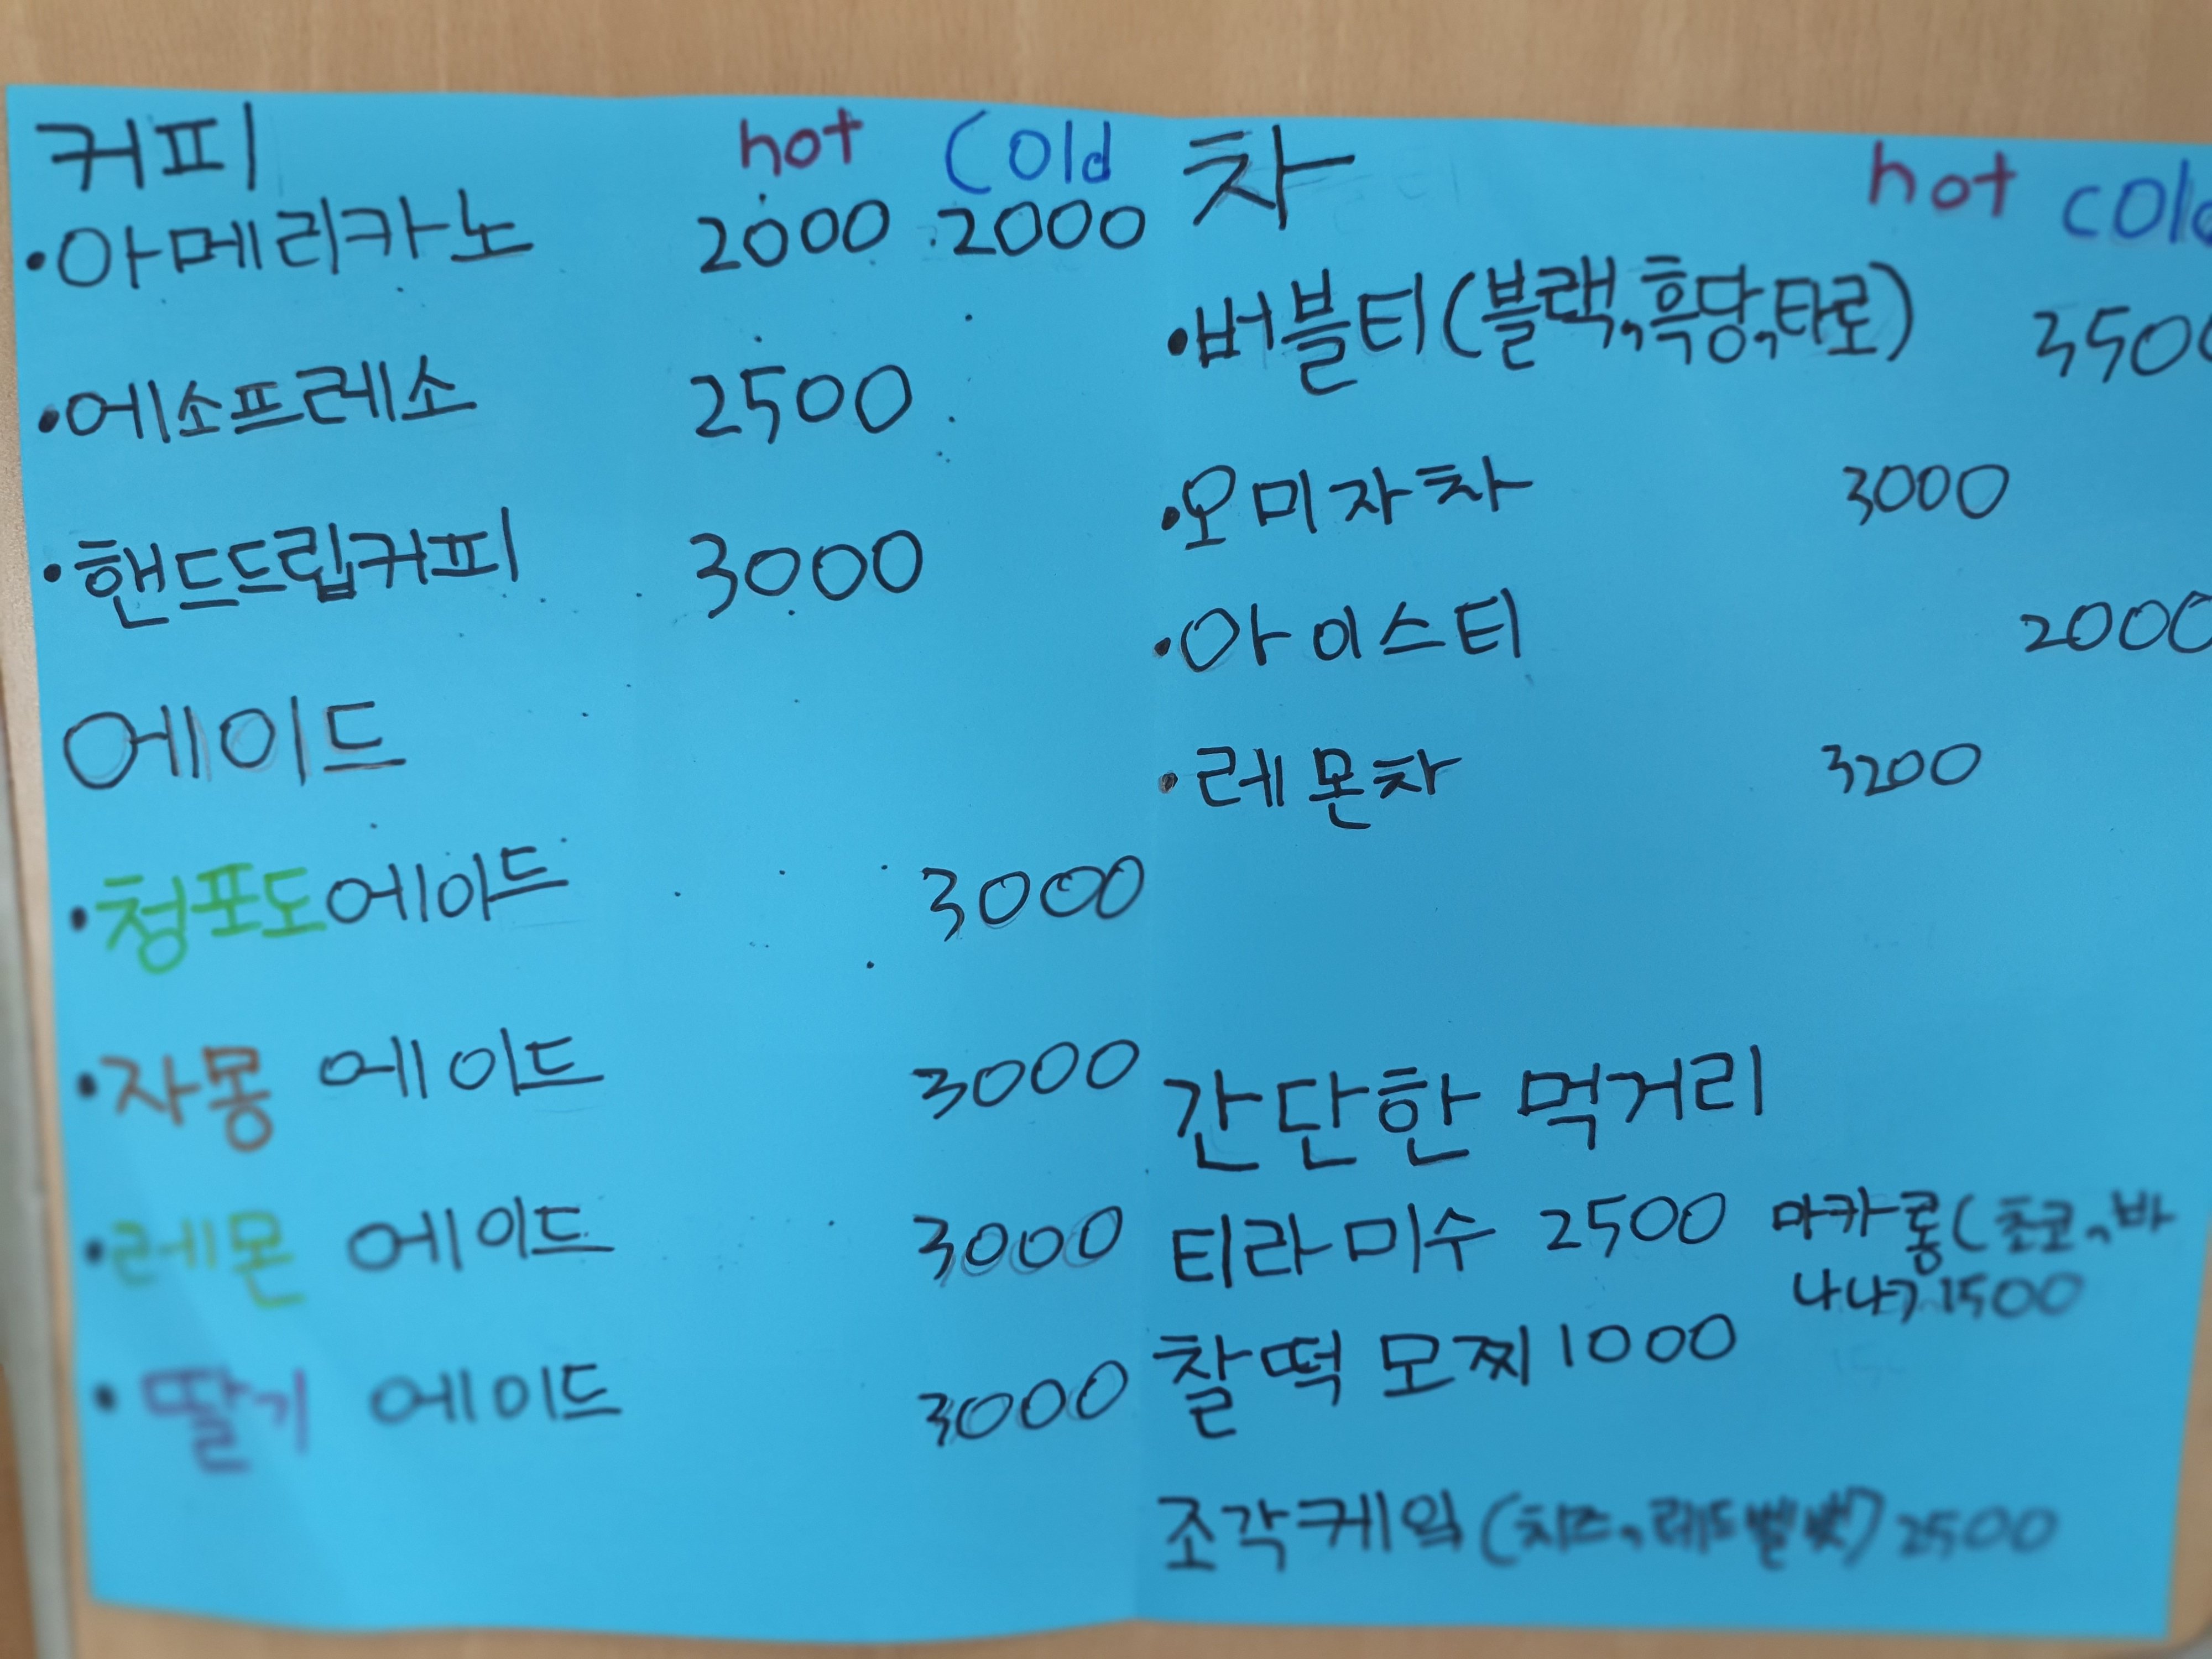 커피 hot cold
•아메리카노 2000 2000
•에소프레소 2500
•핸드드립커피 3000
에이드
•청포도에이드 3000
•자몽 에이드 3000
•레몬 에이드 3000
•딸기 에이드 3000
차 hot cold
•버블티(블랙,흑당,타로) 3500
•오미자차 3000
•아이스티 2000
•레몬차 3200
간단한 먹거리
티라미수 2500
마카롱(초코,바
나나) 1500
찰떡 모찌 1000
조각케익(치즈,레드벨벳) 2500